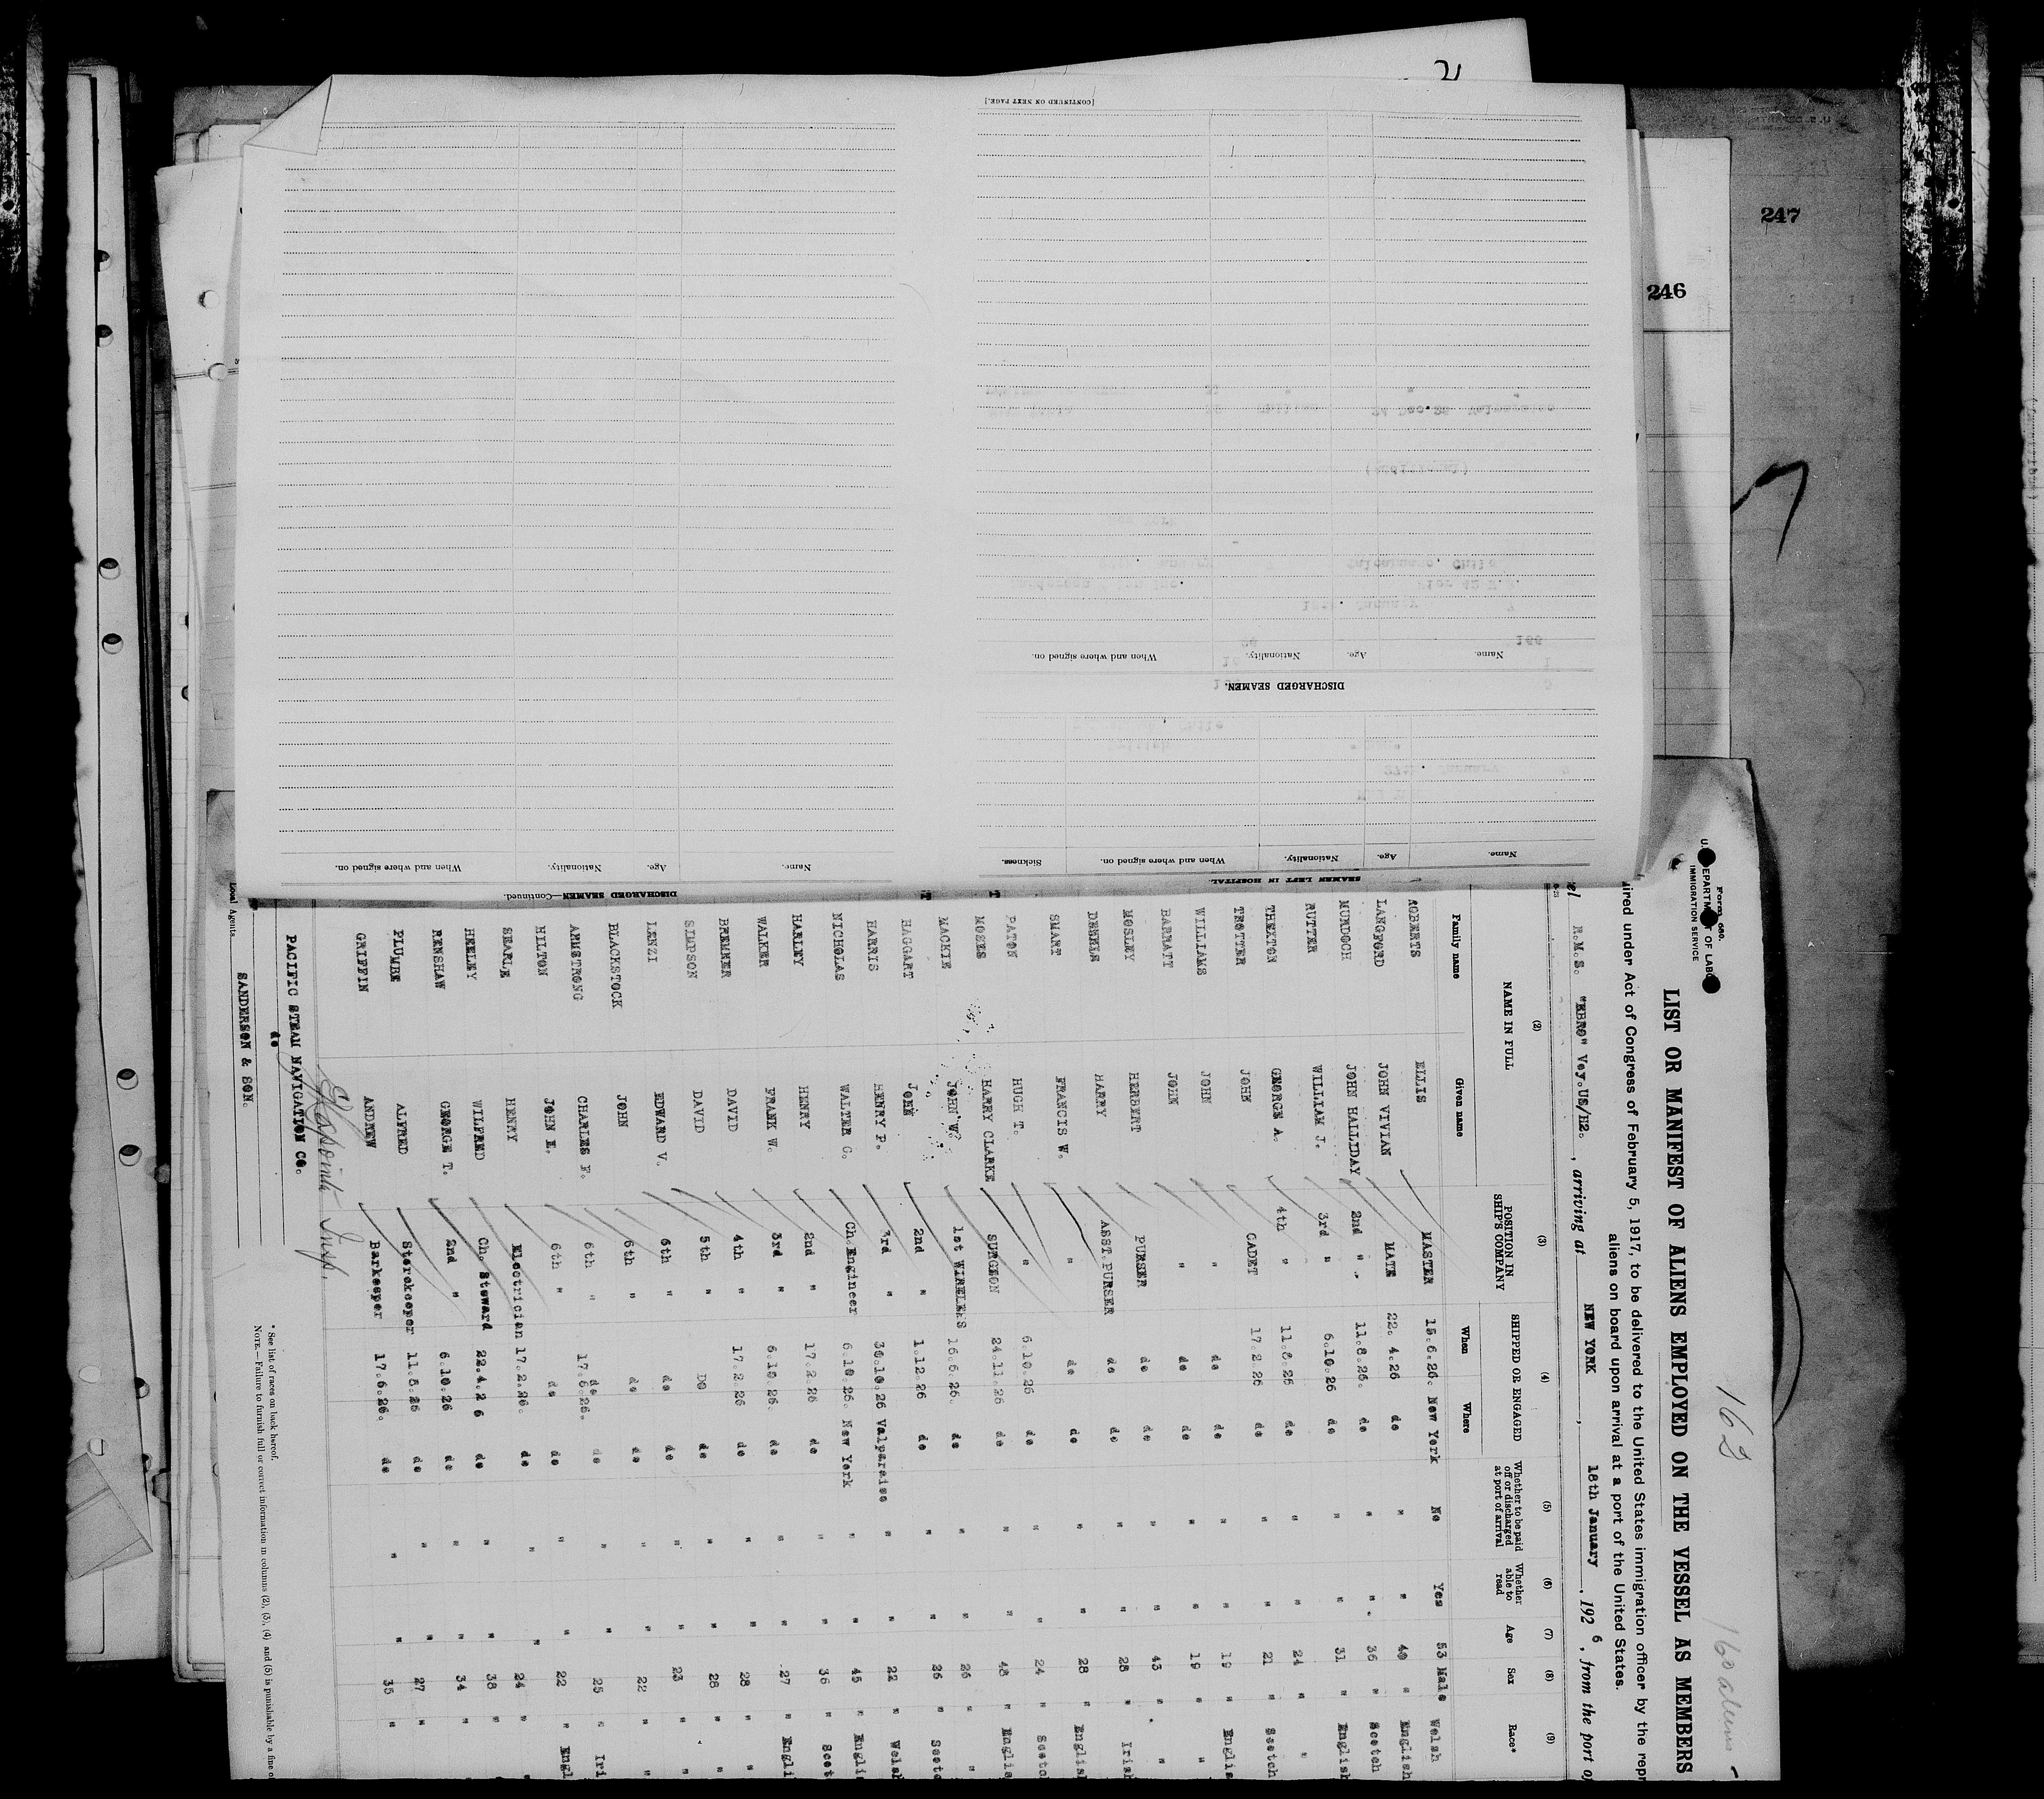 247
246
[CONTINUED ON NEXT PAGE.]
DISCHARGED SEAMEN.
Name. Age. Nationality. When and where signed on.
SEAMEN LEFT IN HOSPITAL.
Name. Age. Nationality. When and where signed on. Sickness.
DISCHARGED SEAMEN—Continued.
Name. Age. Nationality. When and where signed on.
Form 680.
U. S. DEPARTMENT OF LABOR
IMMIGRATION SERVICE
162
160 aliens
LIST OR MANIFEST OF ALIENS EMPLOYED ON THE VESSEL AS MEMBERS
ired under Act of Congress of February 5, 1917, to be delivered to the United States immigration officer by the repr
aliens on board upon arrival at a port of the United States.
el R.M.S. "EBRO" Voy.US/H2. , arriving at NEW YORK , 18th January , 192 6 , from the port o
(2) (3) (4) (5) (6) (7) (8) (9)
NAME IN FULL POSITION IN SHIP'S COMPANY SHIPPED OR ENGAGED Whether to be paid off or discharged at port of arrival Whether able to read Age Sex Race*
Family name Given name When Where
ROBERTS ELLIS MASTER 15.6.26. New York No Yes 53 Male Welsh
LANGFORD JOHN VIVIAN MATE 22. 4.26 do " " 40 " English
MURDOCH JOHN HALLIDAY 2nd " 11.8.26. do " " 36 " Scotch
RUTTER WILLIAM J. 3rd " 6.10.26 do " " 31 " English
THEXTON GEORGE A. 4th " 11.8.26 do " " 24 " "
TROTTER JOHN CADET 17.2.26 do " " 21 " Scotch
WILLIAMS JOHN " do do " " 19 " Englis
BARRATT JOHN " do do " " 19 " "
MOSLEY HERBERT PURSER do do " " 43 " "
DENNIS HARRY ASST. PURSER do do " " 28 " Irish
SMART FRANCIS W. " do do " " 28 " English
PATON HUGH T. " 6.10.26 do " " 24 " Scotc
MOSES HARRY CLARKE SURGEON 24.11.26 do " " 48 " Englis
MACKIE JOHN W. 1st WIRELESS 15.6.26. do " " 26 " "
HAGGART JOHN 2nd " 1.12.26 do " " 26 " Scotc
HARRIS HENRY P. 3rd " 30.10.26 Valparaiso " " 22 " Welsh
NICHOLAS WALTER C. Ch. Engineer 6.10.26. New York " " 45 " Englis
HARLEY HENRY 2nd " 17.2.26 do " " 36 " Scot
WALKER FRANK W. 3rd " 6.10.26. do " " 27 " Engli
BREMNER DAVID 4th " 17.2.26 do " " 28 " "
SIMPSON DAVID 5th " DO do " " 28 " "
LENZI EDWARD V. 6th " do do " " 23 " "
BLACKSTOCK JOHN 6th " do do " " 22 " "
ARMSTRONG CHARLES F. 6th " 17.6.26. do " " 25 " Iri
HILTON JOHN E. 6th " do do " " 22 " Engl
SEARLE HENRY Electrician 17.2.26. do " " 24 " "
HEELEY WILFRED Ch. Steward 22.4.2 6 do " " 38 " "
RENSHAW GEORGE T. 2nd " 6.10.26 do " " 34 " "
PLUMBE ALFRED Storekeeper 11.8.26 do " " 27 " "
GRIFFIN ANDREW Barkeeper 17.6.26. do " " 35 " "
Insp.
PACIFIC STEAM NAVIGATION CO.
do
SANDERSON & SON.
Local Agents
* See list of races on back hereof.
NOTE.—Failure to furnish full or correct information in columns (2), (3), (4) and (5) is punishable by a fine o